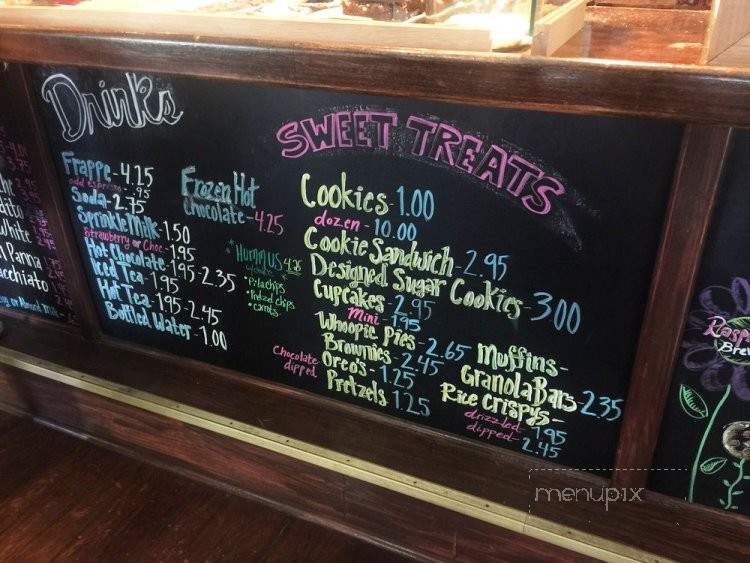 Drinks
Frappe - 4.25
add espresso - .95
Soda - 2.75
Sprinkle Milk - 1.50
Strawberry or Choc - 1.95
Hot Chocolate - 1.95 - 2.35
Iced Tea - 1.95
Hot Tea - 1.95 - 2.45
Bottled Water - 1.00
Frozen Hot
Chocolate - 4.25
*Hummus 4.25
*Pita chips
*Pretzel chips
*Carrots
SWEET TREATS
Cookies - 1.00
dozen - 10.00
Cookie Sandwich - 2.95
Designed Sugar Cookies - 3.00
Cupcakes - 2.95
Mini - 1.95
Whoopie Pies - 2.65
Brownies - 2.45
Chocolate
dipped
Oreo's - 1.25
Pretzels 1.25
Muffins -
Granola Bars - 2.35
Rice Crispys -
drizzled - 1.95
dipped - 2.45
White
Panna
menupix